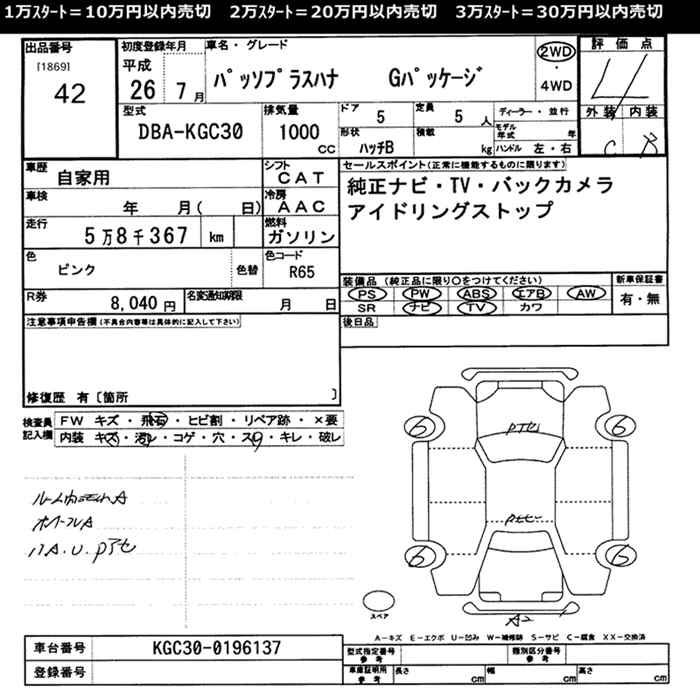 1万スタート＝10万円以内売切　2万スタート＝20万円以内売切　3万スタート＝30万円以内売切
出品番号
[1869]
42
初度登録年月
平成
26 7 月
車名・グレード
パッソプラスハナ Gパッケージ
2WD
・
4WD
評価点
4
外装 内装
C B
型式
DBA-KGC30
排気量
1000 cc
ドア 5
定員 5 人
形状 ハッチB
積載 kg
ディーラー・並行
モデル年式 年
ハンドル 左・右
車歴
自家用
シフト
CAT
車検
年 月( 日)
冷房
AAC
走行
5万8千367 km
燃料
ガソリン
色
ピンク
色替
色コード
R65
R券
8,040 円
名変通知期限
月 日
セールスポイント(正常に機能するものに限ります)
純正ナビ・TV・バックカメラ
アイドリングストップ
装備品(純正品に限り○をつけてください)
PS PW ABS エアB AW
SR ナビ TV カワ
新車保証書
有・無
後日品
注意事項申告欄(不具合内容等は具体的に記入して下さい)
修復歴 有〔箇所 〕
検査員記入欄
FW キズ・飛石・ヒビ割・リペア跡・×要
内装 キズ・汚レ・コゲ・穴・スレ・キレ・破レ
6 6
6 6
A2
スペア
A－キズ E－エクボ U－凹み W－補修跡 S－サビ C－腐食 XX－交換済
車台番号
KGC30-0196137
登録番号
型式指定番号
参考
類別区分番号
参考
車庫証明所
参考
長さ cm
幅 cm
高さ cm